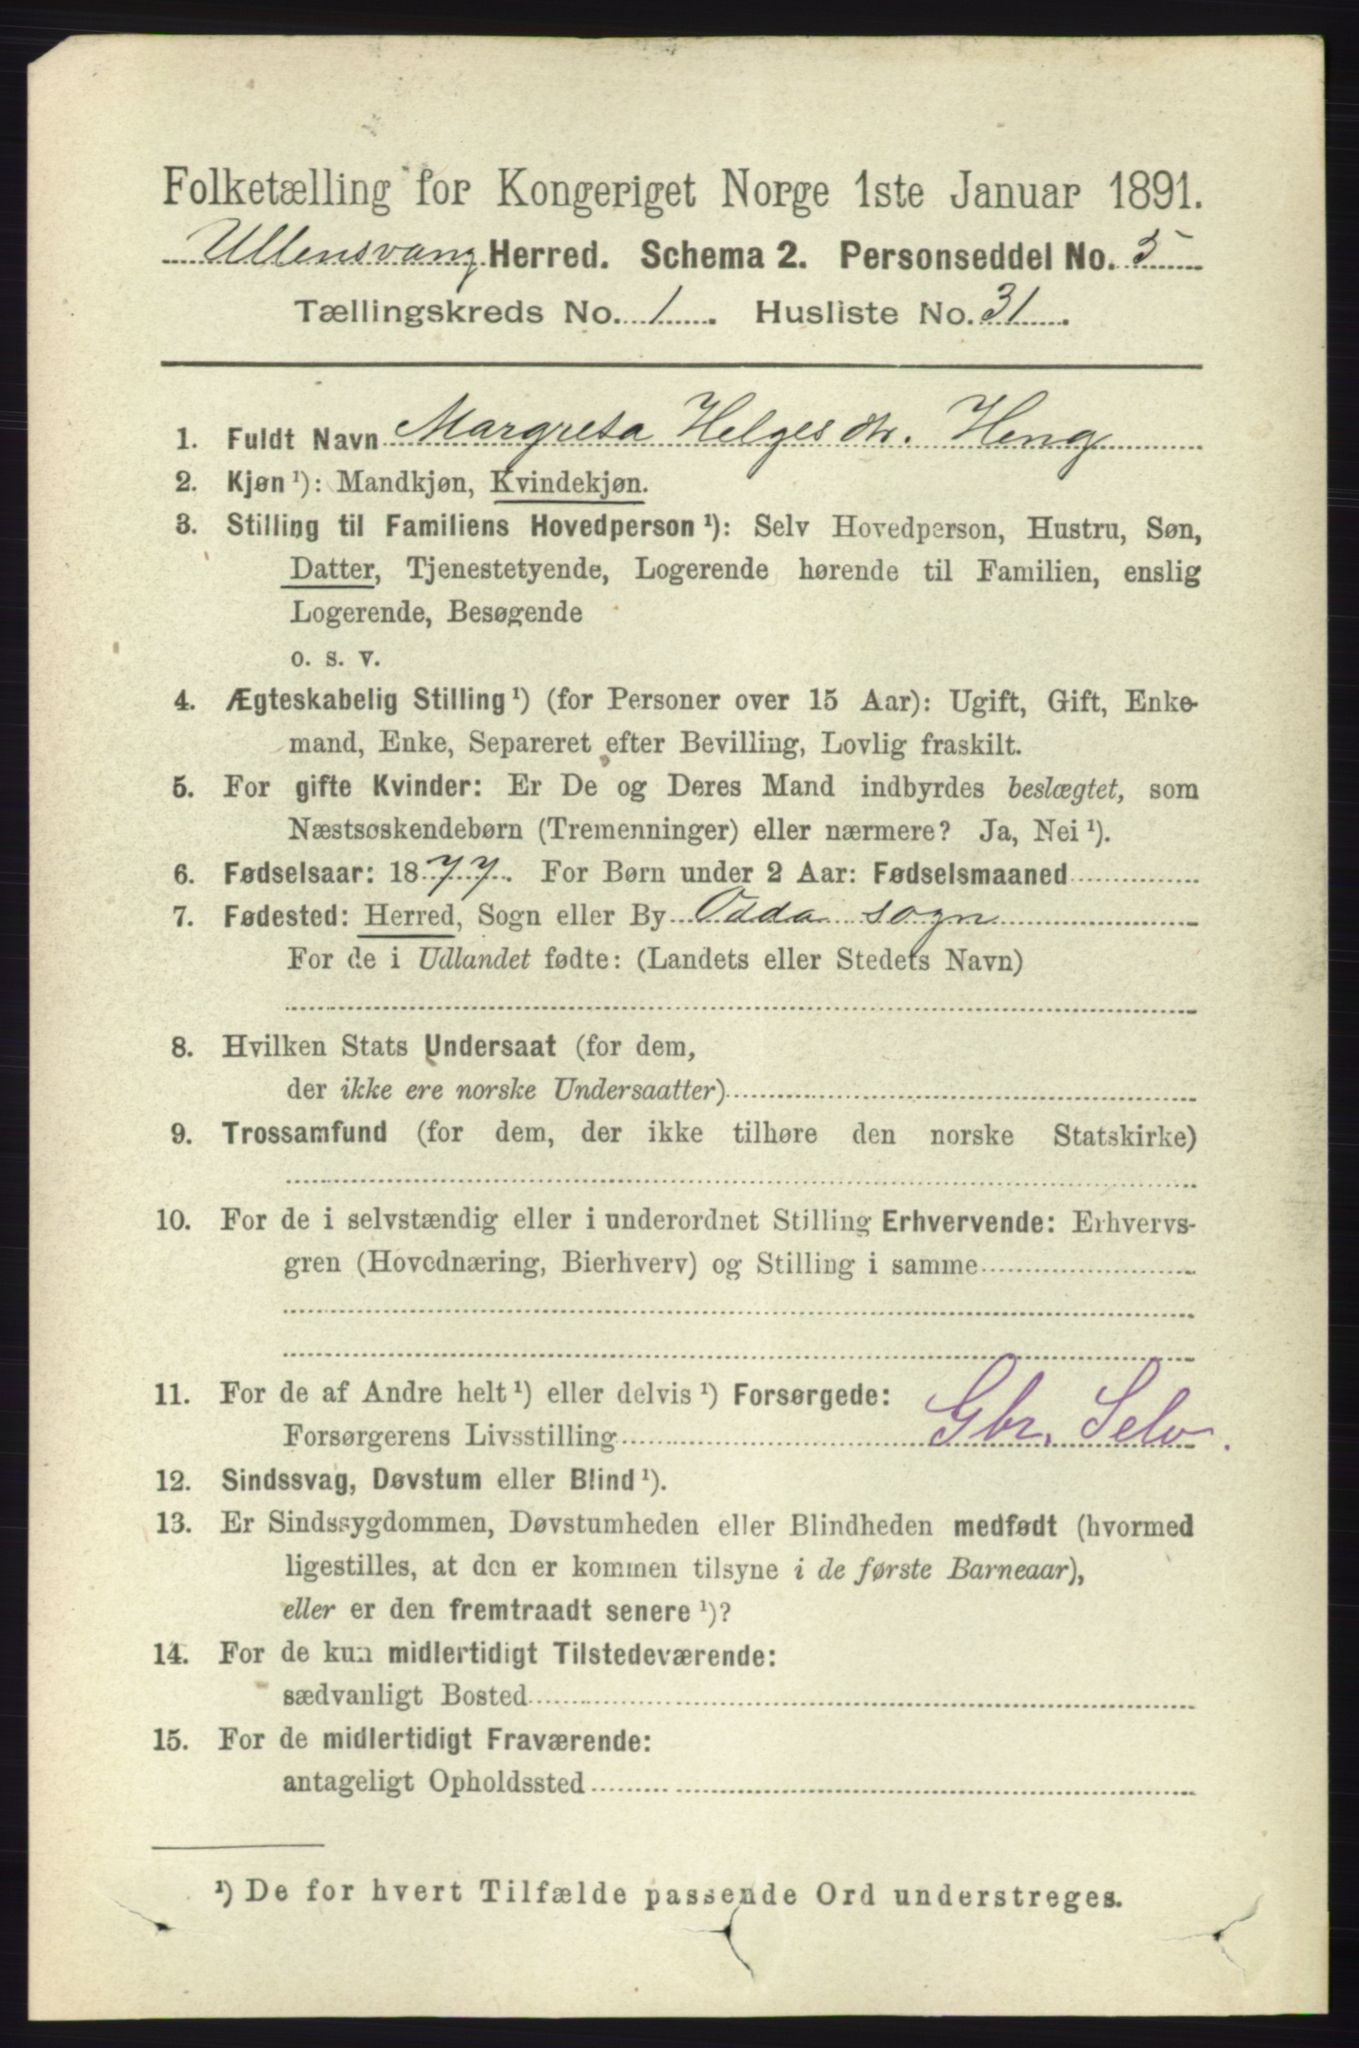 Folketælling for Kongeriget Norge 1ste Januar 1891.
Ullensvang Herred. Schema 2. Personseddel No. 5
Tællingskreds No. 1. Husliste No. 31.
1. Fuldt Navn Margreta Helgesdtr. Heng
2. Kjøn ¹): Mandkjøn, Kvindekjøn.
3. Stilling til Familiens Hovedperson ¹): Selv Hovedperson, Hustru, Søn,
Datter, Tjenestetyende, Logerende hørende til Familien, enslig
Logerende, Besøgende
o. s. v.
4. Ægteskabelig Stilling ¹) (for Personer over 15 Aar): Ugift, Gift, Enke-
mand, Enke, Separeret efter Bevilling, Lovlig fraskilt.
5. For gifte Kvinder: Er De og Deres Mand indbyrdes beslægtet, som
Næstsøskendebørn (Tremenninger) eller nærmere? Ja, Nei ¹).
6. Fødselsaar: 1877. For Børn under 2 Aar: Fødselsmaaned
7. Fødested: Herred, Sogn eller By Odda sogn
For de i Udlandet fødte: (Landets eller Stedets Navn)
8. Hvilken Stats Undersaat (for dem,
der ikke ere norske Undersaatter)
9. Trossamfund (for dem, der ikke tilhøre den norske Statskirke)
10. For de i selvstændig eller i underordnet Stilling Erhvervende: Erhvervs-
gren (Hovednæring, Bierhverv) og Stilling i samme
11. For de af Andre helt ¹) eller delvis ¹) Forsørgede:
Forsørgerens Livsstilling Gbr. Selv.
12. Sindssvag, Døvstum eller Blind ¹).
13. Er Sindssygdommen, Døvstumheden eller Blindheden medfødt (hvormed
ligestilles, at den er kommen tilsyne i de første Barneaar),
eller er den fremtraadt senere ¹)?
14. For de kun midlertidigt Tilstedeværende:
sædvanligt Bosted
15. For de midlertidigt Fraværende:
antageligt Opholdssted
¹) De for hvert Tilfælde passende Ord understreges.